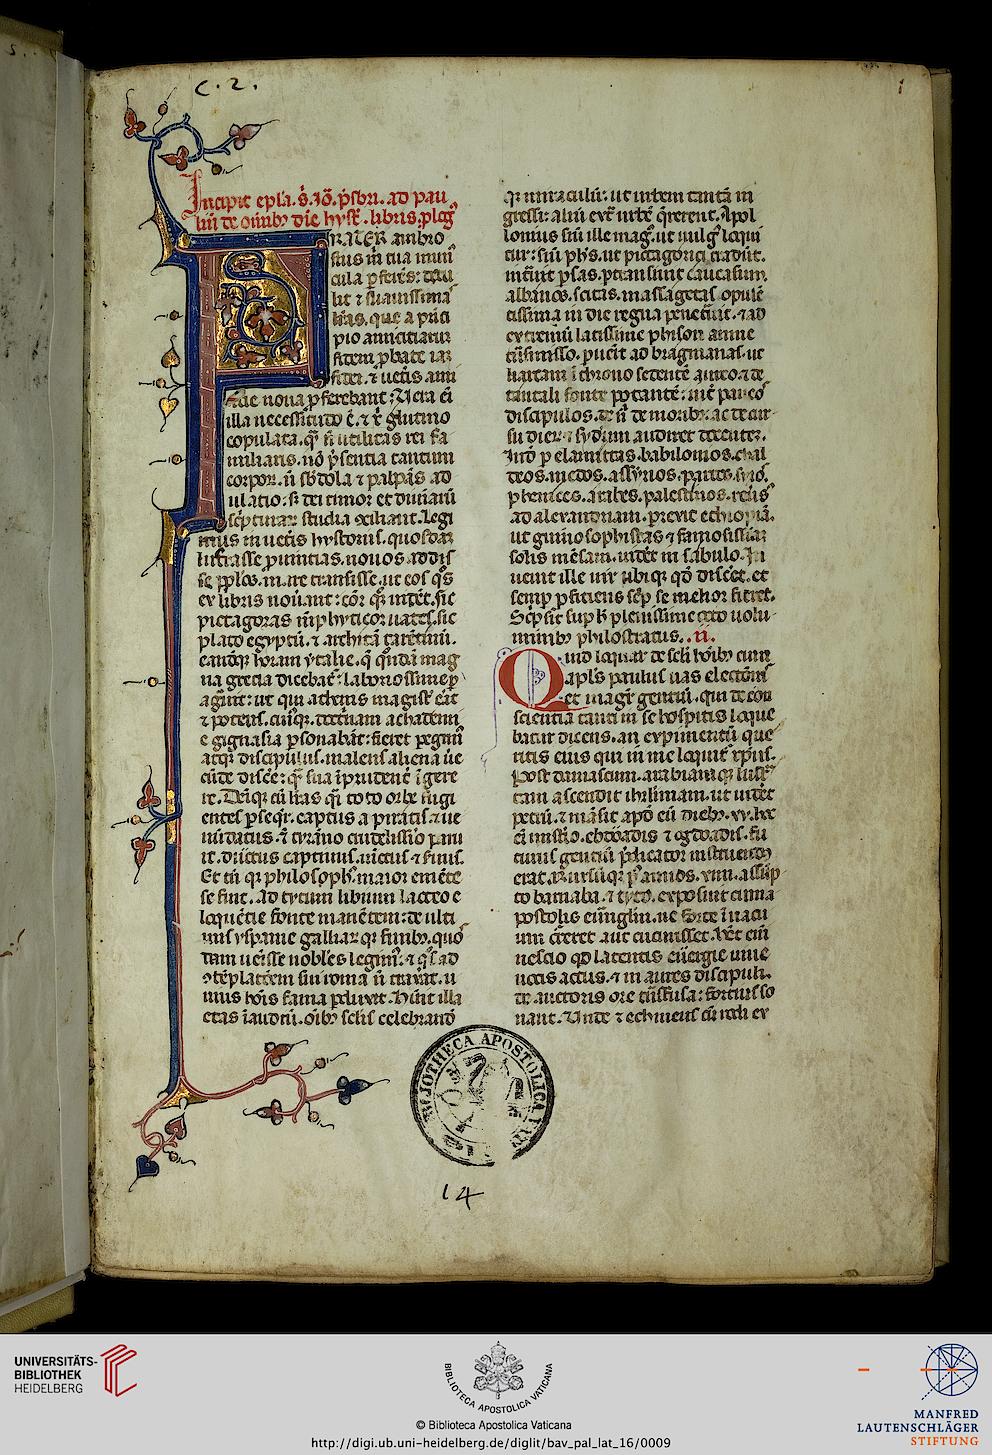 c. 2.
1
Incipit epl'a. s. Io. p'sbri. ad pau
lin de omib9 die hyst'. libris. plog9
FRATER ambro
sius m tua mun
cula p ferēs: detu
lit z suauissimas
lr̄as. que a prīci
pio amicitiarum
fidem pbate iaz
fidei. z uet'is ami
citie noua pferebant: Uera eī
illa necessitudo ē. z x̄ glutino
copulata. q̄ nō utilitas rei fa
miliaris. nō p̄sentia tantum
corpor. nō sbdola z palpās ad
ulatio: s; dei timor et diuinarū
sc̄pturaꝝ studia ɔciliant. Legi
mus in uet'is hystoriis. quosdaz
lustrasse prouintias. nouos adiis
se ppl'os. mare transisse. ut eos q̄s
ex libris nouant: corā q̄ ꝫ uidēt. sic
pictagoras mēphyticos uates. sic
plato egyptū. z architā tarētinū.
eandēq; horam ytalie. q̄ q̄ndā mag
na grecia dicebat': laboriosissime p
agiuit: ut qui athenis magist' erat
z potens. cuiusq; doctrinam achademi
e gignasia psonabāt: fieret pegrin9
atq; discipulus. malens aliena ue
cūde discē: q̄ sua īprudent' īgere
re. Deniq; cū lr̄as q̄si toto orbe fugi
entes pseqr'. captus a piratis z ue
nūdatus. z tyrāno crudelissīo paru
it. ductus captiuus. uictus z seruus.
Et tn̄ qr philosoph9. maior emēte
se fuit. Ad tytum liuium lacteo e
loquētie fonte manētem: de ulti
mis yspanie galliaꝝ q; finib9. quos
dam uēisse nobiles legim9: z q̄s ad
ɔtēplatōem sui roma nō traxat. u
nius hoīs fama pduxit. Hūit illa
etas īauditū. oīb9 sclis celebrand
q; miraculū: ut urbem tantā in
gressi: aliud ext' urbē q̄rerent. Apol
lonius siue ille mag9. ut uulg9 loqui
tur: siue ph's. ut pictagorici tradūt.
intuit psas. ptransiuit caucasum.
albanos. scitas. massagetas. opulē
tissima indie regna penet'uit. z ad
extremū latissime phison amne
tn̄smisso. puenit ad bragmanas. ut
hiartam ī throno sedentē aureo. z de
tantali fonte potantē: int' paucos
discipulos. de n̄. de morib9. ac de cur
su dierū z sydeꝝ audiret docētez.
Inde p elamittas. babilonios. chal
deos. medos. assyrios. partos. syros.
phenices. arabes. palestinos. reūs9
ad alexandriam. prexit ethiopiā.
ut gimnosophistas z famosissimaz
solis mēsam. uidēt in sabulo. In
uenit ille uir ubiq; qd' disc'et. et
semp pficiens sēp se melior fieret.
Sc̄psit sup h' plenissime octo uolu
minib9 philostratus. .ii.
Quid loquar de scl'i hoīb9 cum
apl's paulus uas electōnis
et magr' gentiū. qui de con
scientia tanti in se hospitis loque
batur dicens. an expimentū que
ritis eius qui in me loquit' xp̄us.
Post damascum. arabiamq; lustra
tam ascendit iherl'imam. ut uidēt
petrū. z māsit apd' eū dieb9. xv. hoc
eī misterio. ebdoadis z ogdoadis. fu
turus gentiū p̄dicator instruendus
erat. Rursusq; p9 annos. xiiii. assūp
to barnaba. z tyto. exposuit cum a
postolis euūgliu. ne forte ī uacu
um cr̄eret aut cucurrisset. Hēt eni
nescio qd' latentis enērgie uiue
uocis actus. z in aures discipuli.
de auctoris ore tn̄sfusa: fortius so
nant. Unde z echineus cū rodi ex
BIBLIOTHECA APOSTOLICA VATICANA
14
UNIVERSITÄTS-
BIBLIOTHEK
HEIDELBERG
BIBLIOTECA APOSTOLICA VATICANA
© Biblioteca Apostolica Vaticana
http://digi.ub.uni-heidelberg.de/diglit/bav_pal_lat_16/0009
MANFRED
LAUTENSCHLÄGER
STIFTUNG